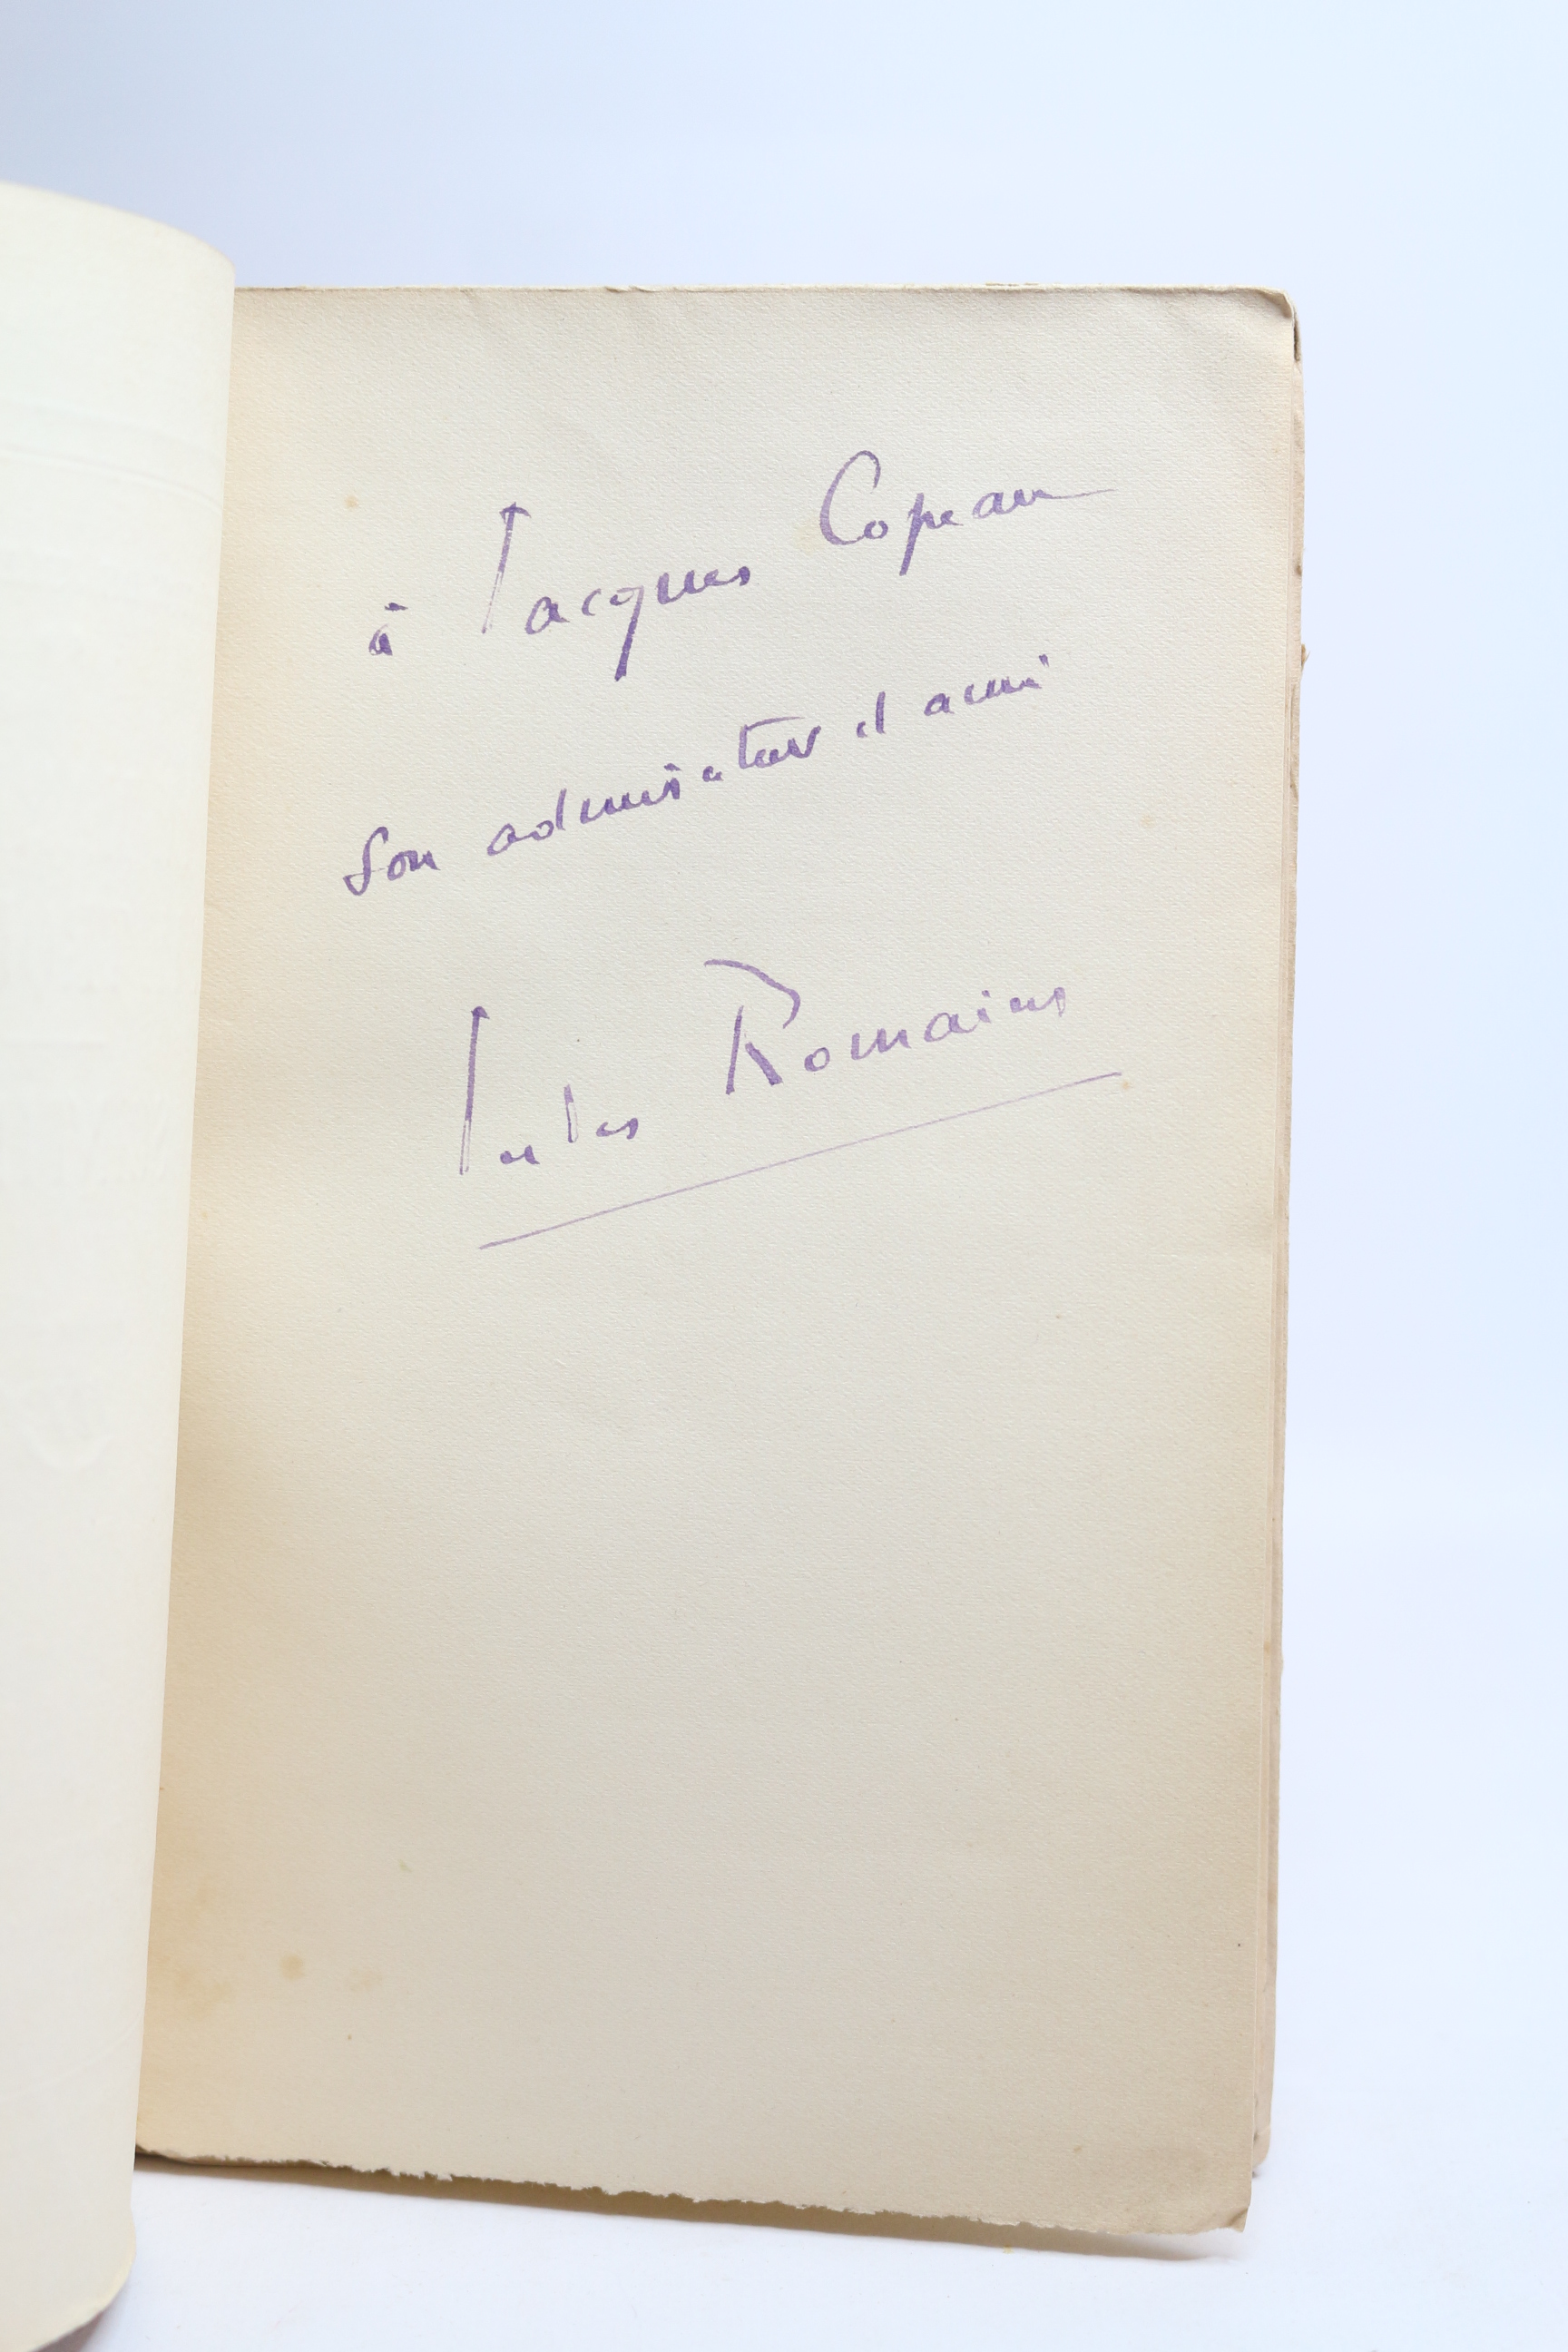 à Jacques Copeau
son admirateur et ami
Jules Romains